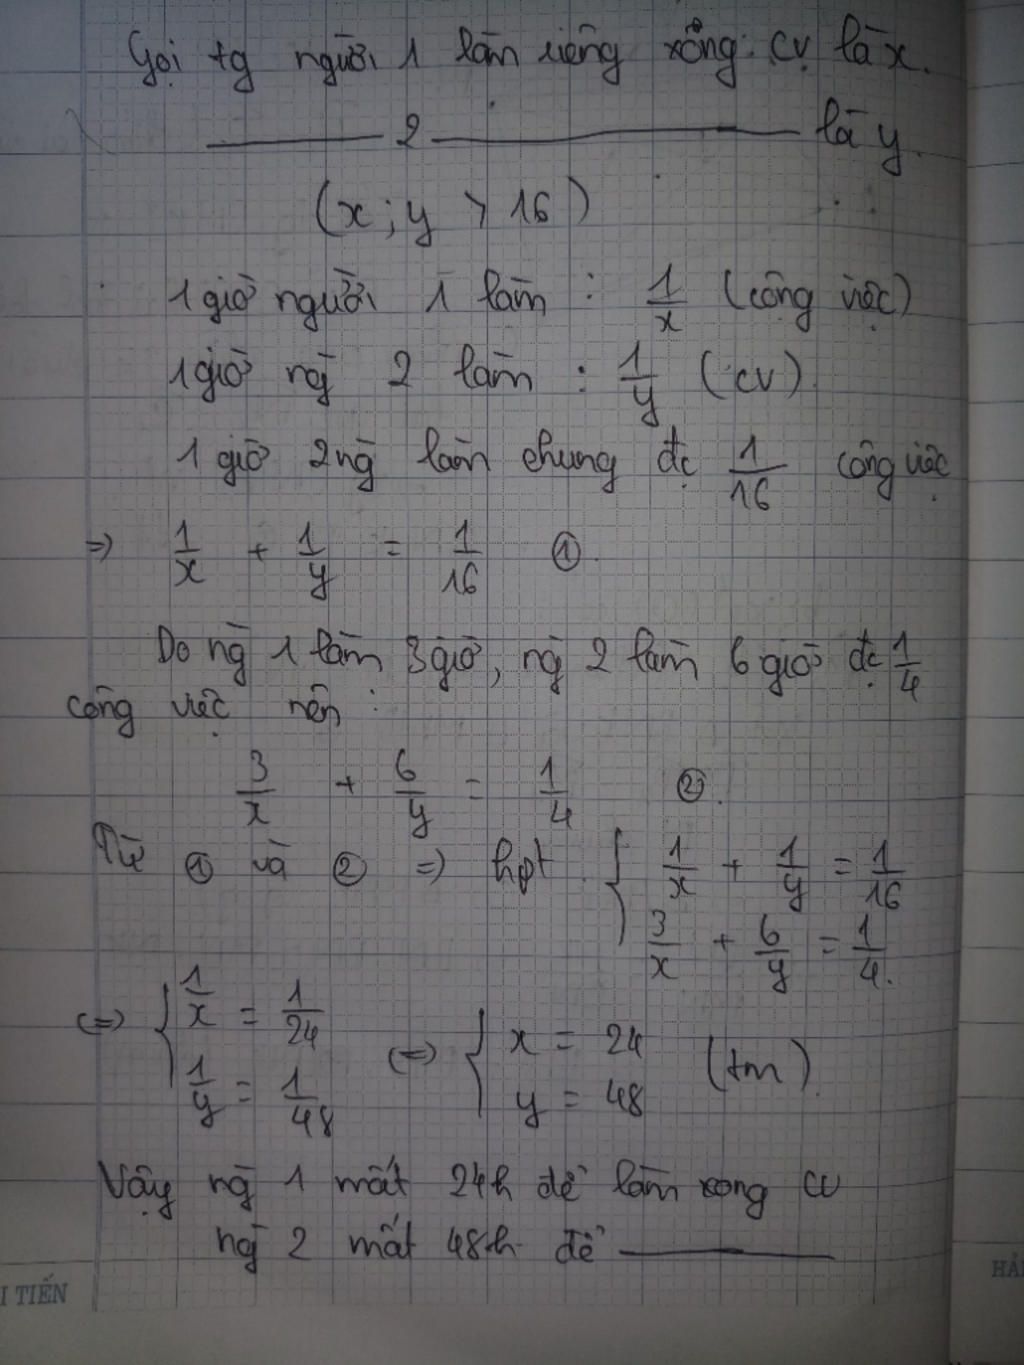 Gọi tg người 1 làm riêng xong CV là x.
——— 2 ——— là y.
(x; y > 16)
1 giờ người 1 làm : 1/x (công việc)
1 giờ ng 2 làm : 1/y (CV).
1 giờ 2 ng làm chung đc 1/16 công việc
=> 1/x + 1/y = 1/16 ①.
Do ng 1 làm 3 giờ, ng 2 làm 6 giờ đc 1/4
công việc nên :
3/x + 6/y = 1/4 ②.
Từ ① và ② => hpt { 1/x + 1/y = 1/16
3/x + 6/y = 1/4.
(=) { 1/x = 1/24
1/y = 1/48
(=) { x = 24
y = 48
(tm).
Vậy ng 1 mất 24h để làm xong CV
ng 2 mất 48h để ———
I TIẾN
HẢ